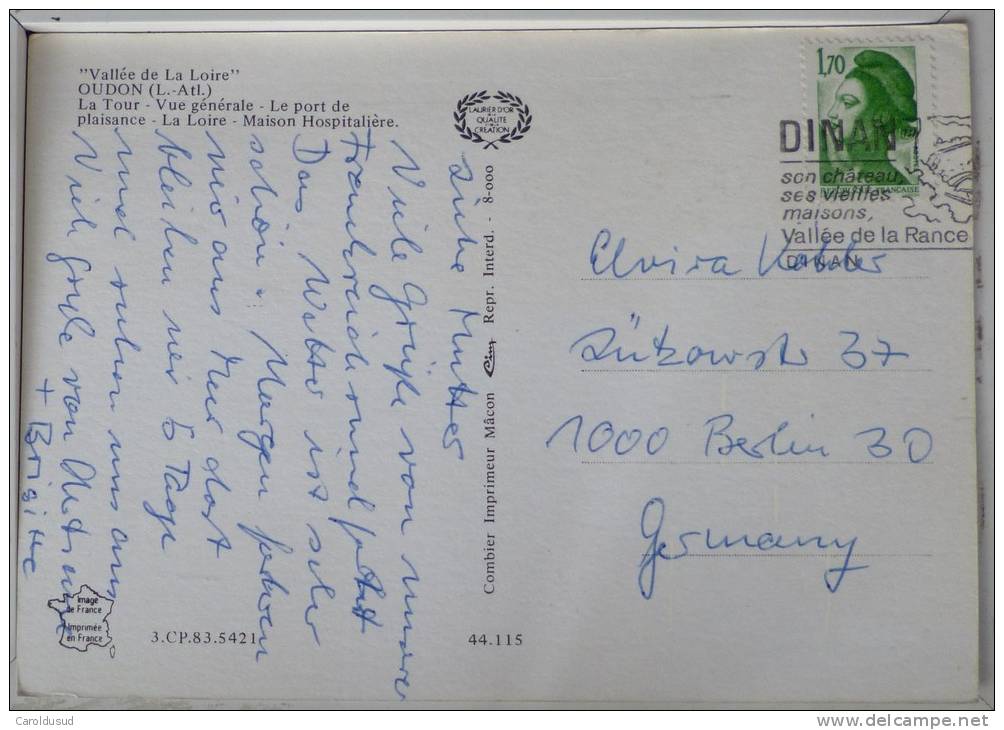 "Vallée de La Loire"
OUDON (L.-Atl.)
La Tour - Vue générale - Le port de
plaisance - La Loire - Maison Hospitalière.
LAURIER D'OR
DE LA
QUALITÉ
CRÉATION
1,70
FRANÇAISE
DINAN
son château,
ses vieilles
maisons,
Vallée de la Rance
DINAN
Liebe Mutter
Viele Grüße von
Frankreichrundfahrt
Das Wetter ist sehr
schön. Morgen fahren
wir ans Meer dort
bleiben wir 5 Tage
und ruhen uns aus
Viele Grüße von
+ Brigitte
Combier Imprimeur Mâcon Cim Repr. Interd. - 8-000
Elvira
Lützowstr 37
1000 Berlin 30
Germany
Image
de France
Imprimée
en France
3.CP.83.5421
44.115
Caroldusud
delcampe.net